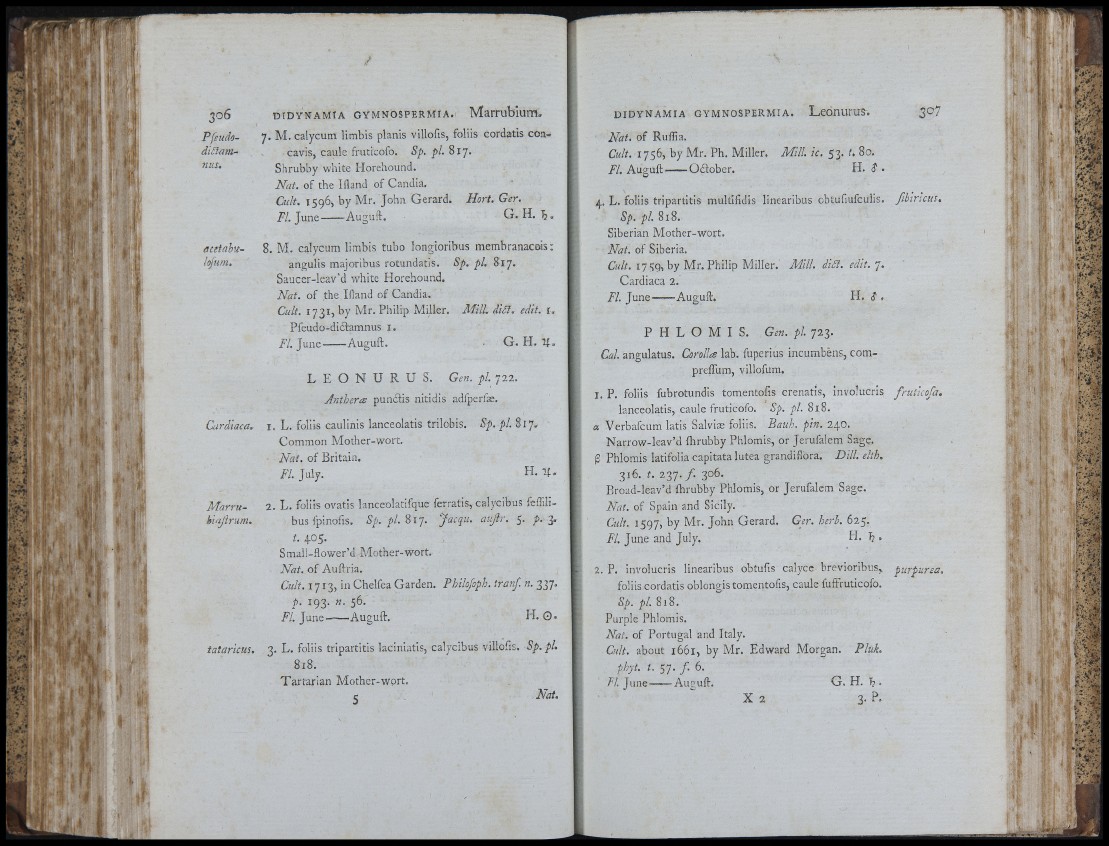 306 DIDYNAMIA GYMNOSPERMIA. Marrubium.
Pſeudo- 7. M. calycum limbis planis villoſis, foliis cordatis con-
dictam- cavis, caule fruticoſo. Sp. pl. 817.
nus. Shrubby white Horehound.
Nat. of the Iſland of Candia.
Cult. 1596, by Mr. John Gerard. Hort. Ger.
Fl. June——Auguſt. G. H. ♄.
acetabu- 8. M. calycum limbis tubo longioribus membranaceis:
loſum. angulis majoribus rotundatis. Sp. pl. 817.
Saucer-leav'd white Horehound.
Nat. of the Iſland of Candia.
Cult. 1731, by Mr. Philip Miller. Mill. dict. edit. 1.
Pſeudo-dictamnus 1.
Fl. June——Auguſt. G. H. ♃.
LEONURUS. Gen. pl. 722.
Antheræ punctis nitidis adſperſæ.
Cardiaca. 1. L. foliis caulinis lanceolatis trilobis. Sp. pl. 817.
Common Mother-wort.
Nat. of Britain.
Fl. July. H. ♃.
Marru- 2. L. foliis ovatis lanceolatiſque ſerratis, calycibus ſeſſili-
biaſtrum. bus ſpinoſis. Sp. pl. 817. Jacqu. auſtr. 5. p. 3.
t. 405.
Small-flower'd Mother-wort.
Nat. of Auſtria.
Cult. 1713, in Chelſea Garden. Philoſoph. tranſ. n. 337.
p. 193. n. 56.
Fl. June——Auguſt. H. ☉.
tataricus. 3. L. foliis tripartitis laciniatis, calycibus villoſis. Sp. pl.
818.
Tartarian Mother-wort.
5 Nat.
DIDYNAMIA GYMNOSPERMIA. Leonurus. 307
Nat. of Ruſſia.
Cult. 1756, by Mr. Ph. Miller. Mill. ic. 53. t. 80.
Fl. Auguſt——October. H. ♂.
4. L. foliis tripartitis multifidis linearibus obtuſiuſculis. ſibiricus.
Sp. pl. 818.
Siberian Mother-wort.
Nat. of Siberia.
Cult. 1759, by Mr. Philip Miller. Mill. dict. edit. 7.
Cardiaca 2.
Fl. June——Auguſt. H. ♂.
PHLOMIS. Gen. pl. 723.
Cal. angulatus. Corollæ lab. ſuperius incumbens, com-
preſſum, villoſum.
1. P. foliis ſubrotundis tomentoſis crenatis, involucris fruticoſa.
lanceolatis, caule fruticoſo. Sp. pl. 818.
α Verbaſcum latis Salviæ foliis. Bauh. pin. 240.
Narrow-leav'd ſhrubby Phlomis, or Jeruſalem Sage.
β Phlomis latifolia capitata lutea grandiflora. Dill. elth.
316. t. 237. f. 306.
Broad-leav'd ſhrubby Phlomis, or Jeruſalem Sage.
Nat. of Spain and Sicily.
Cult. 1597, by Mr. John Gerard. Ger. herb. 625.
Fl. June and July. H. ♄.
2. P. involucris linearibus obtuſis calyce brevioribus, purpurea.
foliis cordatis oblongis tomentoſis, caule ſuffruticoſo.
Sp. pl. 818.
Purple Phlomis.
Nat. of Portugal and Italy.
Cult. about 1661, by Mr. Edward Morgan. Pluk.
phyt. t. 57. f. 6.
Fl. June——Auguſt. G. H. ♄.
X 2 3. P.